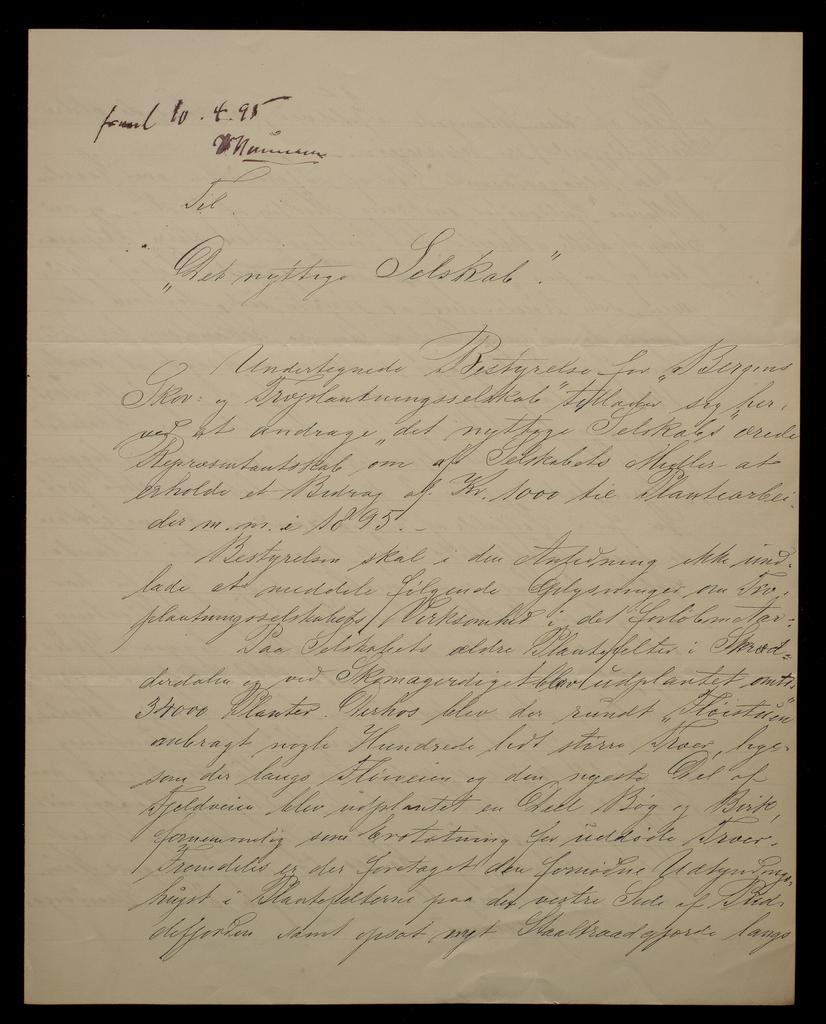 10.4.95
Til
„Det nyttige Selskab“.
Undertegnede Bestyrelse for „Bergens
Skov- og Træplantningsselskab“ tillader sig her-
ved at andrage „det nyttige Selskabs“ ærede
Repræsentantskab om af Selskabets Midler at
erholde et Bidrag af Kr. 1000 til Plantearbei-
der m.m. i 1895.–
Bestyrelsen skal i den Anledning ikke und-
lade at meddele følgende Oplysninger om Træ-
plantningsselskabets Virksomhed i det forløbne Aar:
Paa Selskabets ældre Plantefelter i Skræd-
derdalen og ved Skomagerdiget blev udplantet omtr.
34000 Planter. Derhos blev der rundt „Fløistuen“
anbragt nogle Hundrede lidt større Træer, lige-
som der langs Fløiveien og den nyeste Del af
Fjeldveien blev udplantet en Deel Bøg og Birk,
fornemmelig som Erstatning for uddøde Træer.
Fremdeles er der foretaget den fornødne Udtyndings-
hugst i Plantefelterne paa det vestre Side af Pud-
defjorden samt opsat nyt Staaltraadgjerde langs